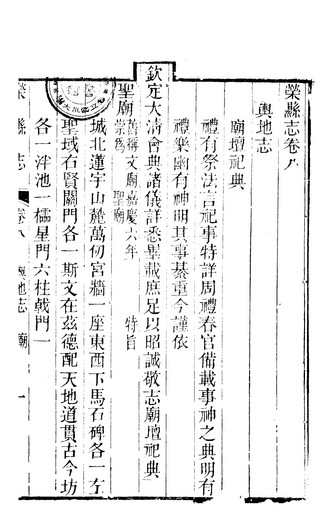 榮縣志卷八
輿地志
廟壇祀典
禮有祭法言祀事特詳周禮春官備載事神之典明有
禮樂幽有神明其事綦重今謹依
欽定大清會典諸儀詳悉畢載庶足以昭誠敬志廟壇祀典
聖廟舊稱文廟嘉慶六年 特旨
崇為 聖廟
城北蓮宇山麓萬仞宮牆一座東西下馬石碑各一左
聖域右賢關門各一斯文在茲德配天地道貫古今坊
各一泮池一櫺星門六柱戟門一
榮縣志 卷八 輿地志 廟 一